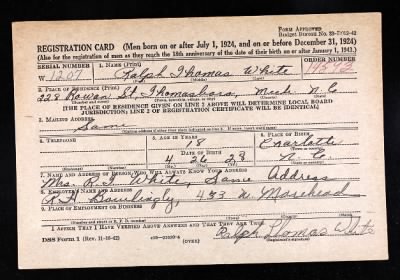 FORM APPROVED
Budget Bureau No. 33-R062-42
REGISTRATION CARD (Men born on or after July 1, 1924, and on or before December 31, 1924)
(Also for the registration of men as they reach the 18th anniversary of the date of their birth on or after January 1, 1943.)
SERIAL NUMBER 1. NAME (Print) ORDER NUMBER
W. 1207 Ralph Thomas White
2. PLACE OF RESIDENCE (Print)
228 Rowan St, Thomasboro, Meck N.C
[THE PLACE OF RESIDENCE GIVEN ON LINE 2 ABOVE WILL DETERMINE LOCAL BOARD
JURISDICTION; LINE 2 OF REGISTRATION CERTIFICATE WILL BE IDENTICAL]
3. MAILING ADDRESS
Same
4. TELEPHONE 5. AGE IN YEARS 6. PLACE OF BIRTH
18 Charlotte
DATE OF BIRTH
4 26 28 N. C.
7. NAME AND ADDRESS OF PERSON WHO WILL ALWAYS KNOW YOUR ADDRESS
Mrs. R. T. White, Same Address
8. EMPLOYER'S NAME AND ADDRESS
R. H. 433 W. Morehead
9. PLACE OF EMPLOYMENT OR BUSINESS
I AFFIRM THAT I HAVE VERIFIED ABOVE ANSWERS AND THAT THEY ARE TRUE.
DSS Form 1 (Rev. 11-16-42) (OVER) Ralph Thomas White
(Registrant's signature)